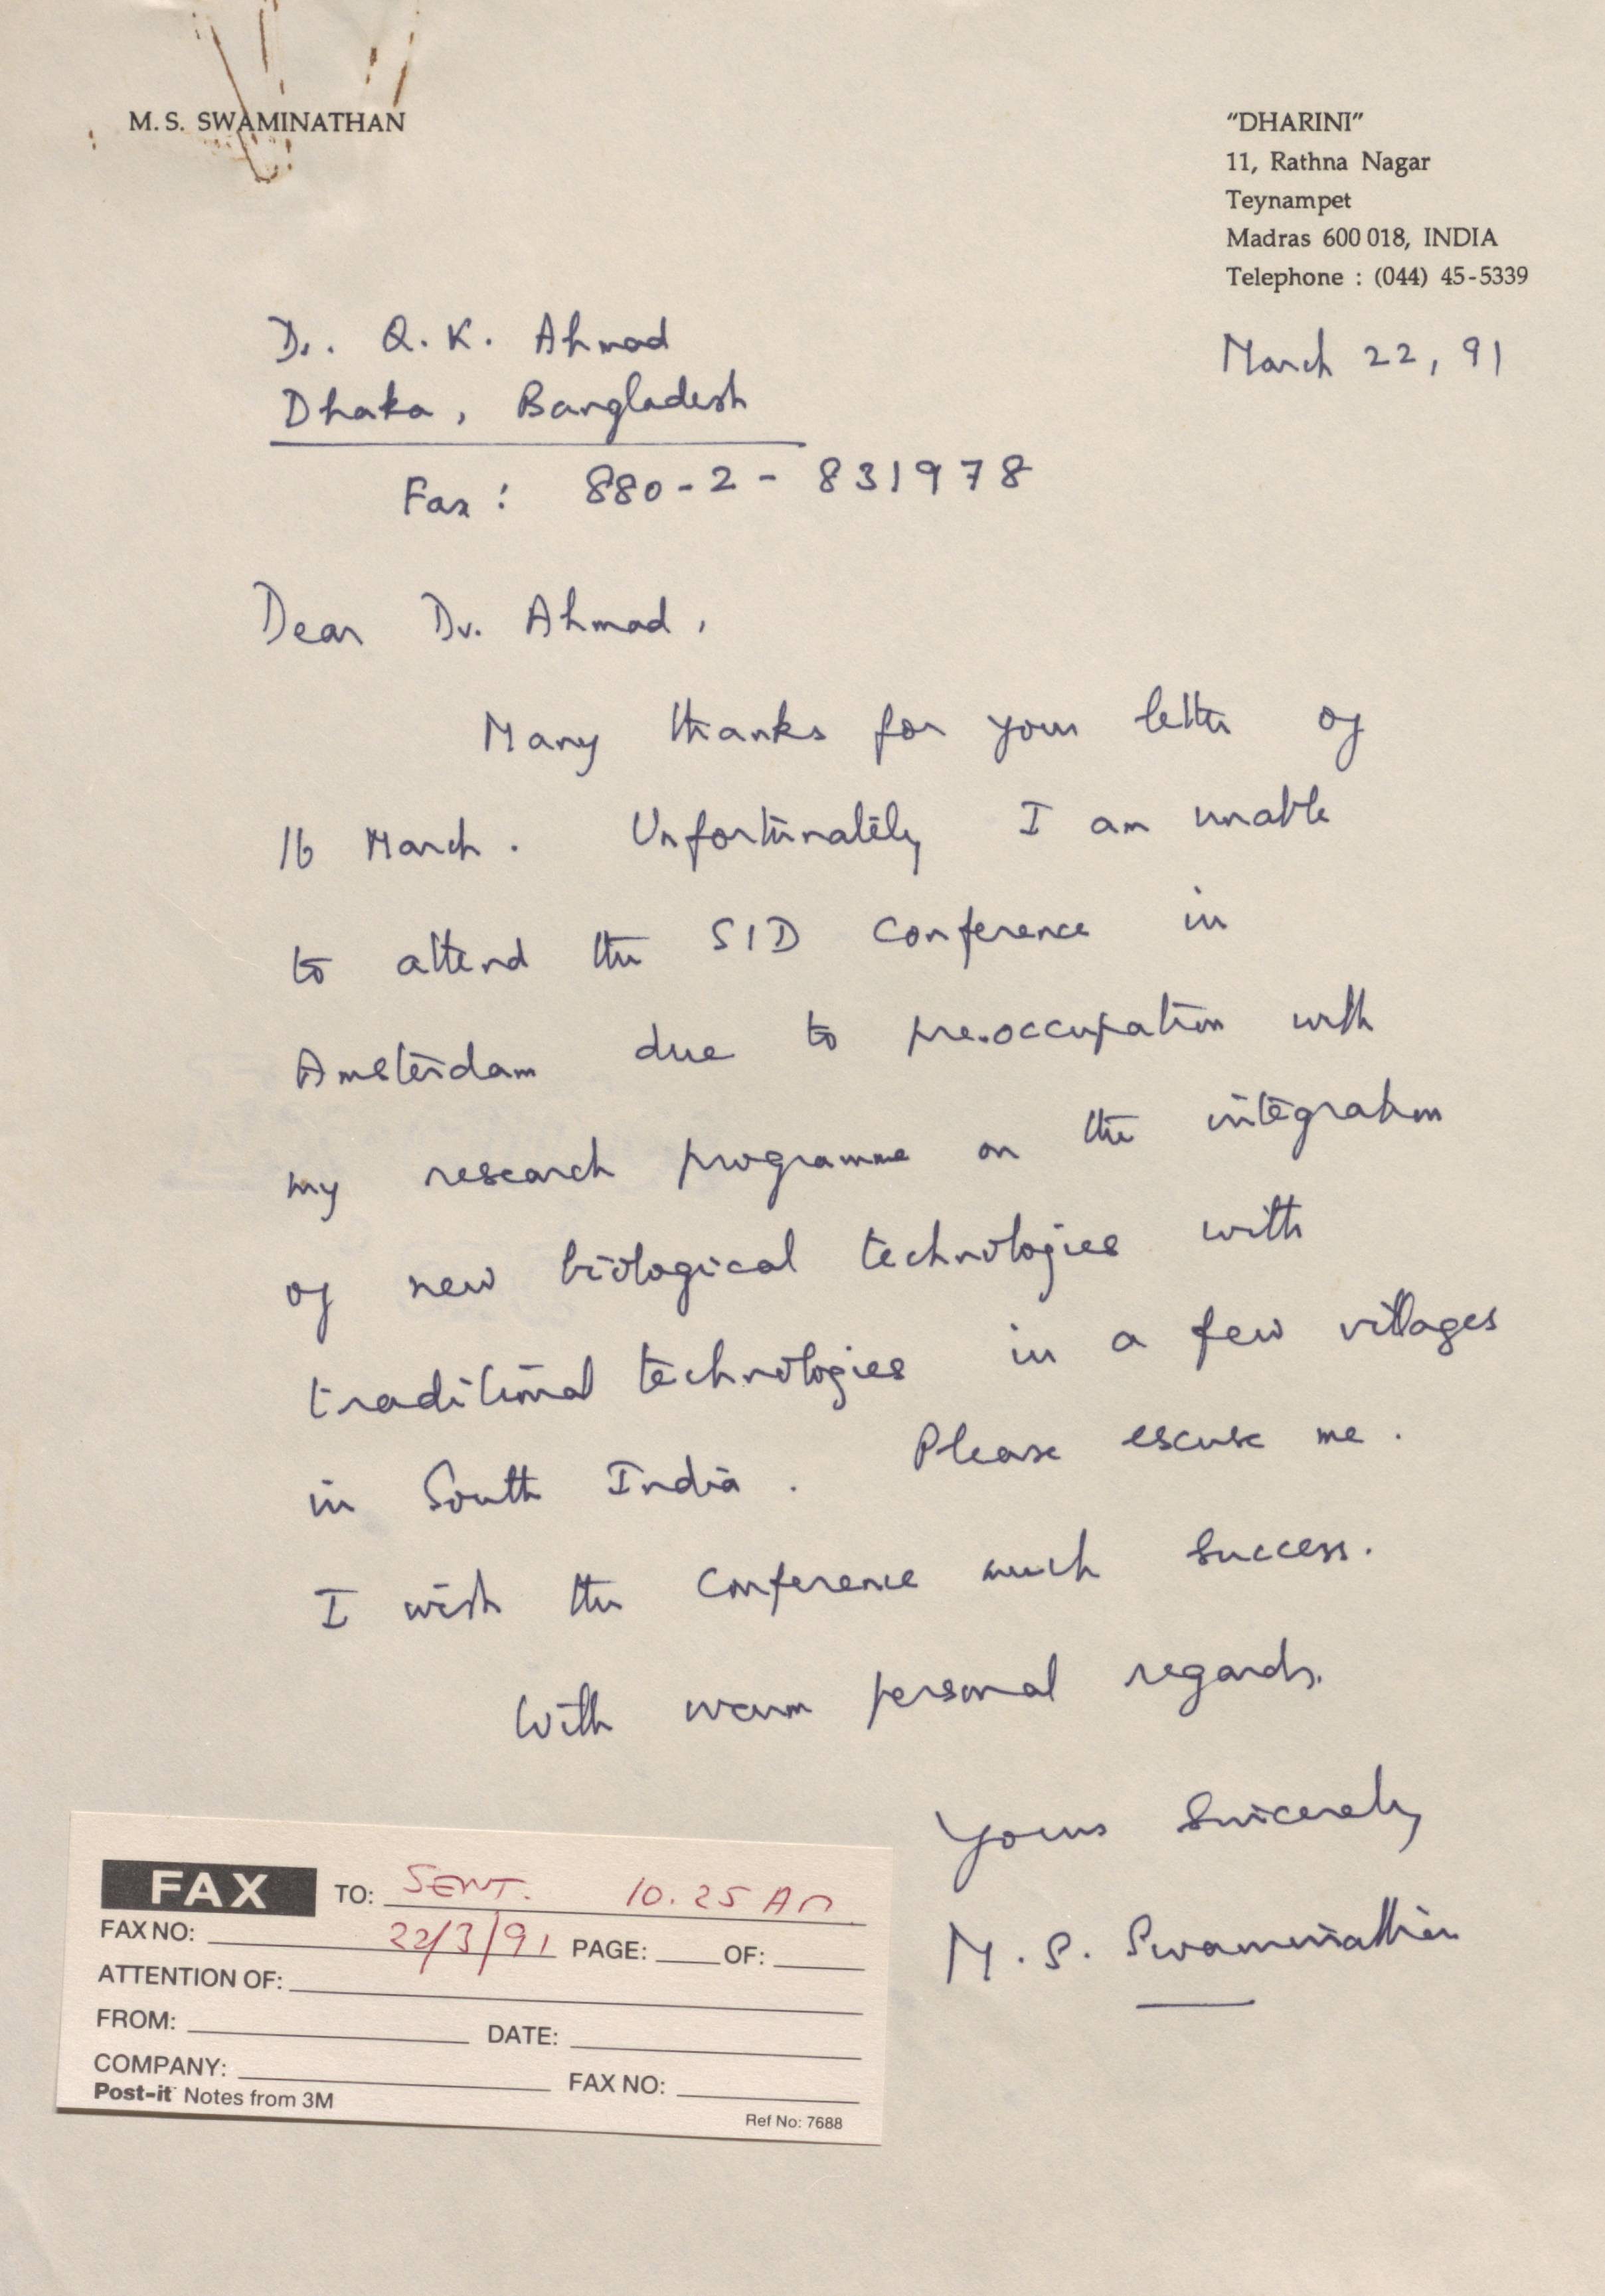 M. S. SWAMINATHAN
"DHARINI"
11, Rathna Nagar
Teynampet
Madras 600 018, INDIA
Telephone : (044) 45-5339
March 22, 91
Dr. Q. K. Ahmad
Dhaka, Bangladesh
Fax : 880-2-831978
Dear Dr. Ahmad,
Many thanks for your letter of
16 March. Unfortunately I am unable
to attend the SID Conference in
Amsterdam due to pre-occupation with
my research programme on the integration
of new biological technologies with
traditional technologies in a few villages
in South India. Please escuse me.
I wish the Conference much success.
With warm personal regards.
Yours Sincerely
M. S. Swaminathan
FAX TO: SENT. 10.25 AM
FAX NO: 22/3/91 PAGE: OF:
ATTENTION OF:
FROM: DATE:
COMPANY: FAX NO:
Post-it Notes from 3M
Ref No: 7688